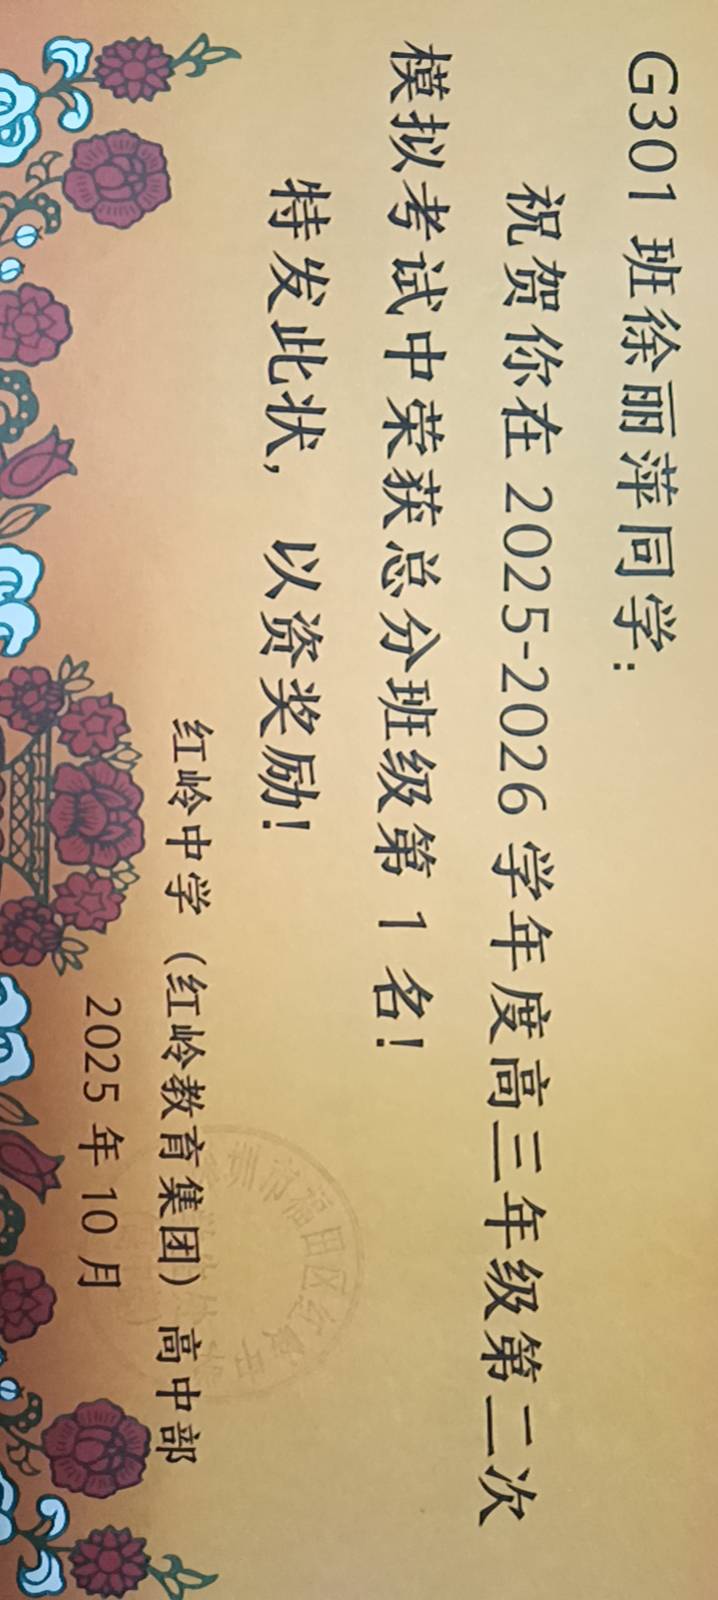 G301 班徐丽萍同学：
祝贺你在 2025-2026 学年度高三年级第二次
模拟考试中荣获总分班级第 1 名！
特发此状，以资奖励！
红岭中学（红岭教育集团）高中部
2025 年 10 月
圳市福田区红岭中